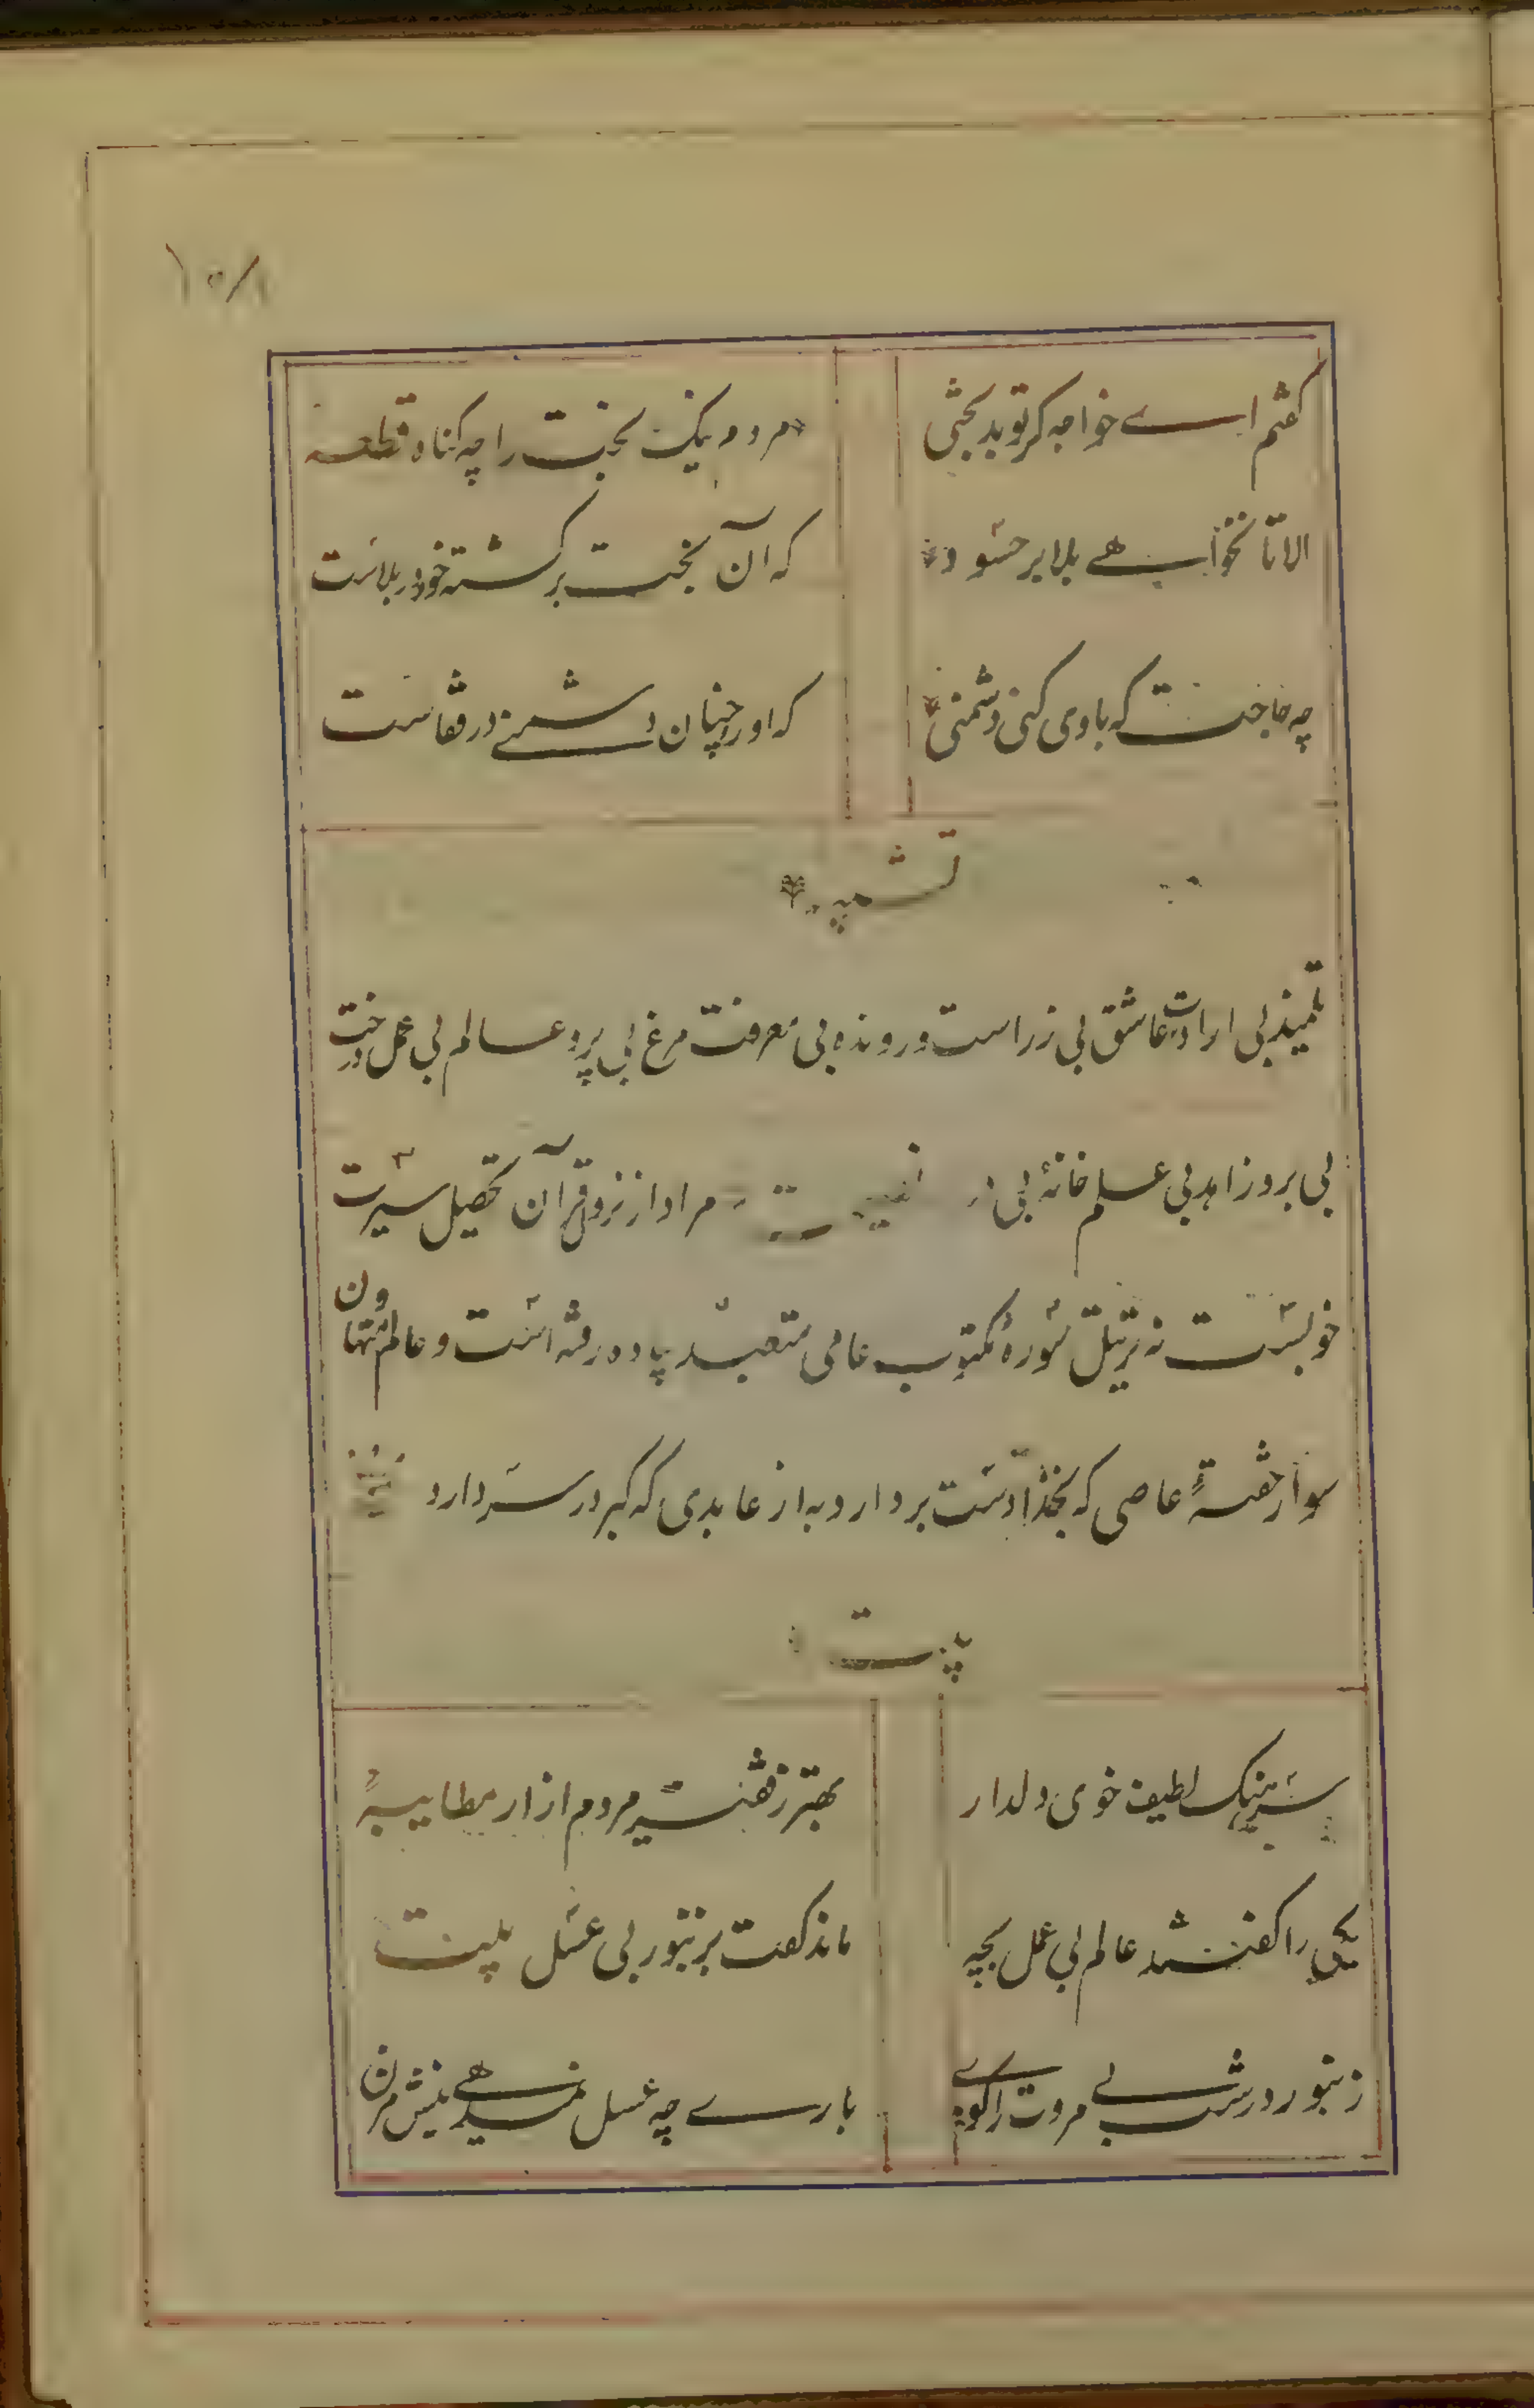 ۱۵۸
گفتم اے خواجه گر تو بدبختی مردم نیک بخت را چه گناه قطعه
الا تا نخواهے بلا بر حسود که آن بخت برگشته خود در بلاست
چه حاجت که با وی کنی دشمنی که او را چنان دشمنے در قفاست
تشبیه
تلمیذ بی ارادت عاشق بی زر است و رونده بی معرفت مرغ بی پر و عالم بی عمل درخت
بی بر و زاهد بی علم خانهٔ بی در مراد از نزول قرآن تحصیل سیرت
خوبست نه ترتیل سورهٔ مکتوب عامی متعبد پیاده رفته است و عالم متهاون
سوار خفته عاصی که بخدا دست بردارد به از عابدی که کبر در سر دارد
بیت
سرهنگ لطیف خوی دلدار بهتر ز فقیه مردم ازار مطایبه
یکی را گفتند عالم بی عمل بچه ماند گفت بزنبور بی عسل بیت
زنبور درشت بے مروت را گوے بارے چه عسل نمیدهے نیش مزن